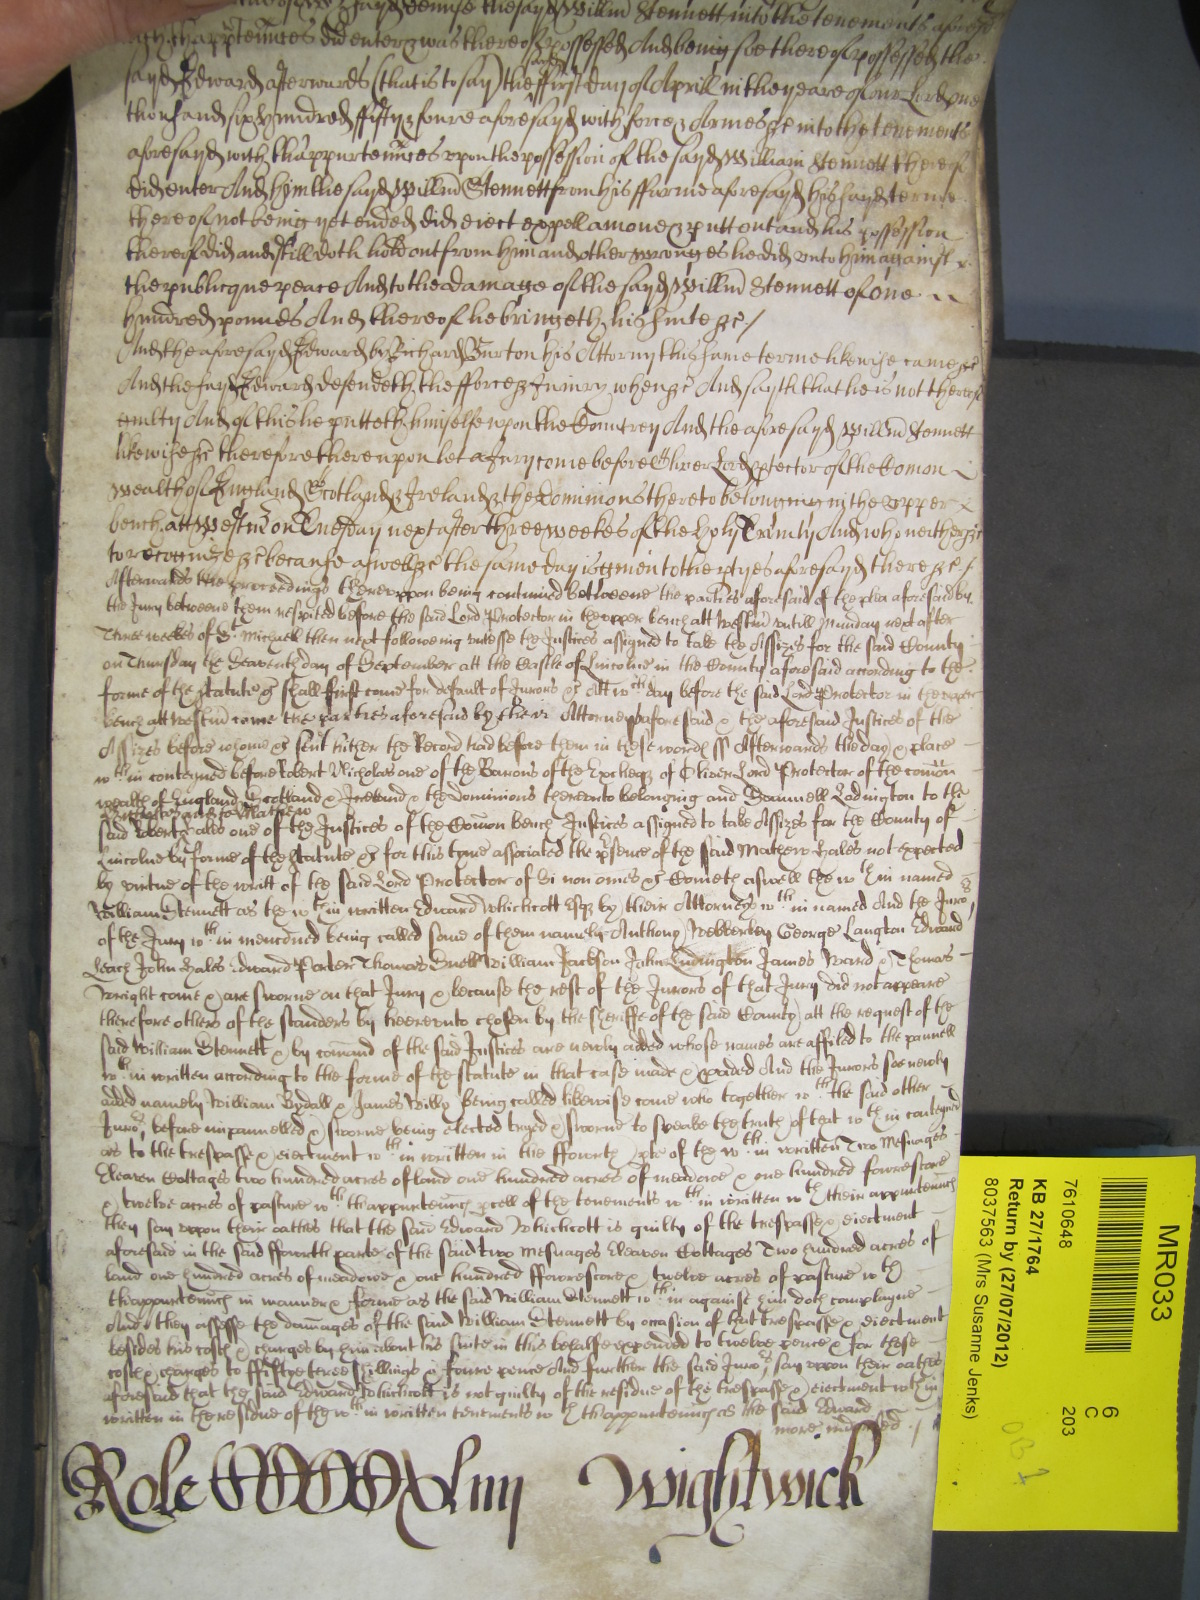 demise the sayd Willm Stennett into the tenements aforesd
with thapptennces did enter & was thereof possessed And being soe thereof possessed the
sayd Edward afterwards (that is to say) the sayd ffirst day of Aprill in the yeare of our Lord one
thousand six hundred ffifty & foure aforesayd with force & Armes &c into the tenements
aforesayd with thappurtennces upon the possession of the sayd William Stennett thereof
did enter And him the sayd Willm Stennett from his ffarme aforesayd his sayd terme
thereof not being yet ended did eiect expell amove & putt out and his possession
thereof did and still doth hold out from him and other wronges he did unto him against
the publicque peace And to the damage of the sayd Willm Stennett of one
hundred pounds And thereof he bringeth his suite &c /
And the aforesayd Edward by Richard Burton his Attorny this same terme likewise came &c
And the sayd Edward defendeth the fforce & Iniury when &c And sayth that he is not thereof
guilty And of this he putteth himselfe upon the Countrey And the aforesayd Willm Stennett
likewise &c therefore thereupon let a Iury come before Oliver Lord ptector of the Comon
wealth of England Scotland & Ireland & the Dominions thereto belonging in the upper
bench att Westmr on Tuesday next after three weekes of the Holy Trinity And who neither &c
to recognize &c because aswell &c the same day is given to the ptyes aforesayd there &c /
Afterwards the proceedings thereuppon being continued betweene the parties aforesaid of the plea aforesaid by
the Jury betweene them respited before the said Lord Protector in the upper bench att Westmr untill Munday next after
Three weekes of St. Michaell then next following unlesse the Justices assigned to take the Assizes for the said County
on Thursday the Seaventh day of September att the Castle of Lincolne in the County aforesaid according to the
forme of the statute &c shall first come for default of Jurors &c Att wch day before the said Lord Protector in the upper
bench att Westmr come the parties aforesaid by their Attorneys aforesaid & the aforesaid Justices of the
Assizes before whome &c sent hither the Record had before them in these words ss Afterwards the day & place
wth in conteyned before Robert Nicholas one of the Barons of the Excheqr of Oliver Lord Protector of the comon
wealth of England Scotland & Ireland & the Dominions thereunto belonging and Samuell Lodington to the
said Robert Nicholas and to Mathew Hales one of the Justices of the Comon bench Justices assigned to take Assizes for the County of
Lincolne by forme of the Statute &c for this tyme associated the psence of the said Mathew Hales not expected
by virtue of the writt of the said Lord Protector of Si non omes &c Cometh aswell the wth in named
William Stennett as the wth in written Edward Whichcott Esqr by their Attorneys wth in named And the Juros
of the Jury wth in menconed being called some of them namely Anthony Webberley George Langton Edward
Leach John Hales Edward Parker Thomas Snell William Jackson John Ludington James Ward & Thomas
Wright come & are sworne on that Jury & because the rest of the Jurors of that Jury did not appeare
therefore others of the standers by hereunto chosen by the sheriffe of the said County att the request of the
said William Stennett & by comand of the said Justices are newly added whose names are affiled to the pannell
wth in written according to the forme of the statute in that case made & pvided And the Jurors soe newly
added namely William Rydall & James Willy being called likewise come who together wth the said other
Juros before impannelled & sworne being elected tryed & sworne to speake the truth of that wth in conteyned
as to the trespasse & eiectment wth in written in the ffourth pte of the wth in written Two Mesuages
Eleaven Cottages two hundred acres of land one hundred acres of meadowe & one hundred fowrescore
& twelve acres of pasture wth thappurtennces pcell of the tenements wth in written wth their appurtennces
they say uppon their oathes that the said Edward Whichcott is guilty of the trespasse & eiectment
aforesaid in the said ffourth parte of the said two Mesuages Eleaven Cottages Two hundred acres of
land one hundred acres of meadowe & one hundred ffowrescore & twelve acres of pasture wth
thappurtennces in manner & forme as the said William Stennett wth in against him doth complayne
And they assesse the damages of the said William Stennett by occasion of that trespasse & eiectment
besides his costs & charges by him about his suite in this behalfe expended to twelve pence & for those
costs & charges to ffiftye three shillings & foure pence And further the said Juros say uppon their oathes
aforesaid that the said Edward Whichcott is not guilty of the residue of the trespasse & eiectment wth in
written in the residue of the wth in written tenements wth thappurtennces as the said Edward
more indorsed /
Role CCCCXLiiij Wightwick
MR033
6
C
203
7610648
KB 27/1764
Return by (27/07/2012)
8037563 (Mrs Susanne Jenks)